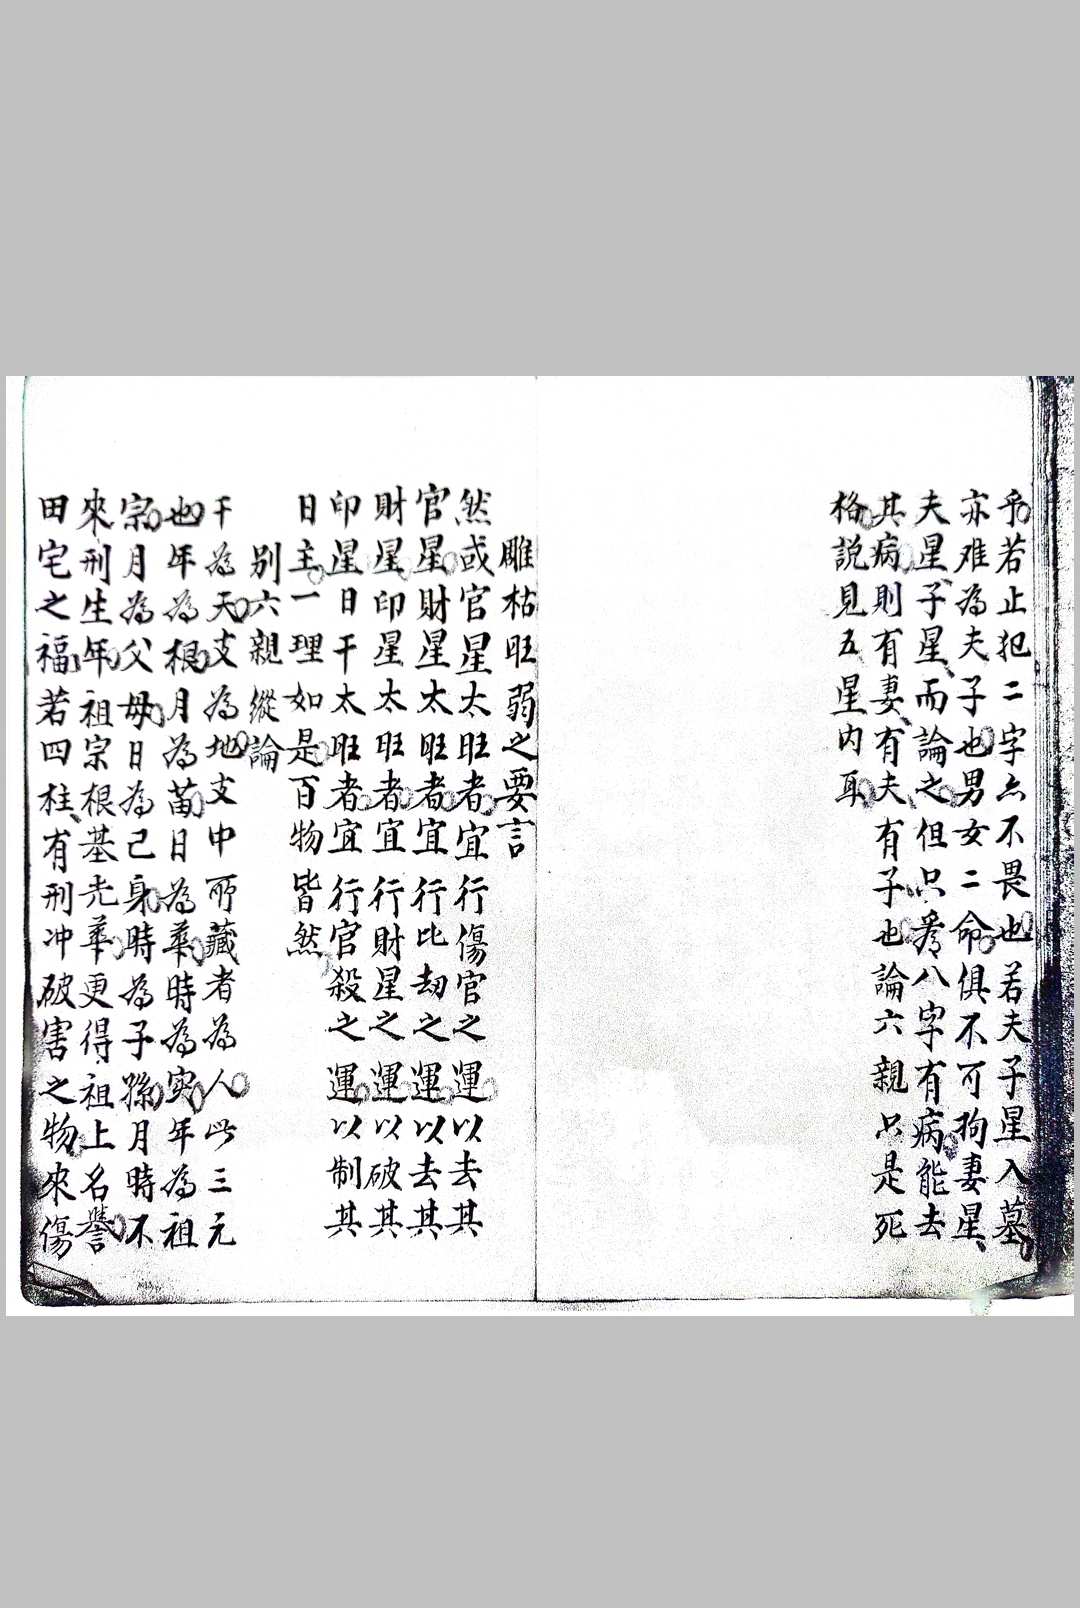 乎若止犯二字亦不畏也若夫子星入墓
亦难為夫子也男女二命俱不可拘妻星
夫星子星而論之但只看八字有病能去
其病則有妻有夫有子也論六親只是死
格說見五星内耳
雕枯旺弱之要言
然或官星太旺者宜行傷官之運以去其
官星財星太旺者宜行比劫之運以去其
財星印星太旺者宜行財星之運以破其
印星日干太旺者宜行官殺之運以制其
日主一理如是百物皆然
别六親縱論
干為天支為地支中所藏者為人此三元
也年為根月為苗日為華時為实年為祖
宗月為父母日為己身時為子孫月時不
來刑生年祖宗根基光華更得祖上名譽
田宅之福若四柱有刑冲破害之物來傷